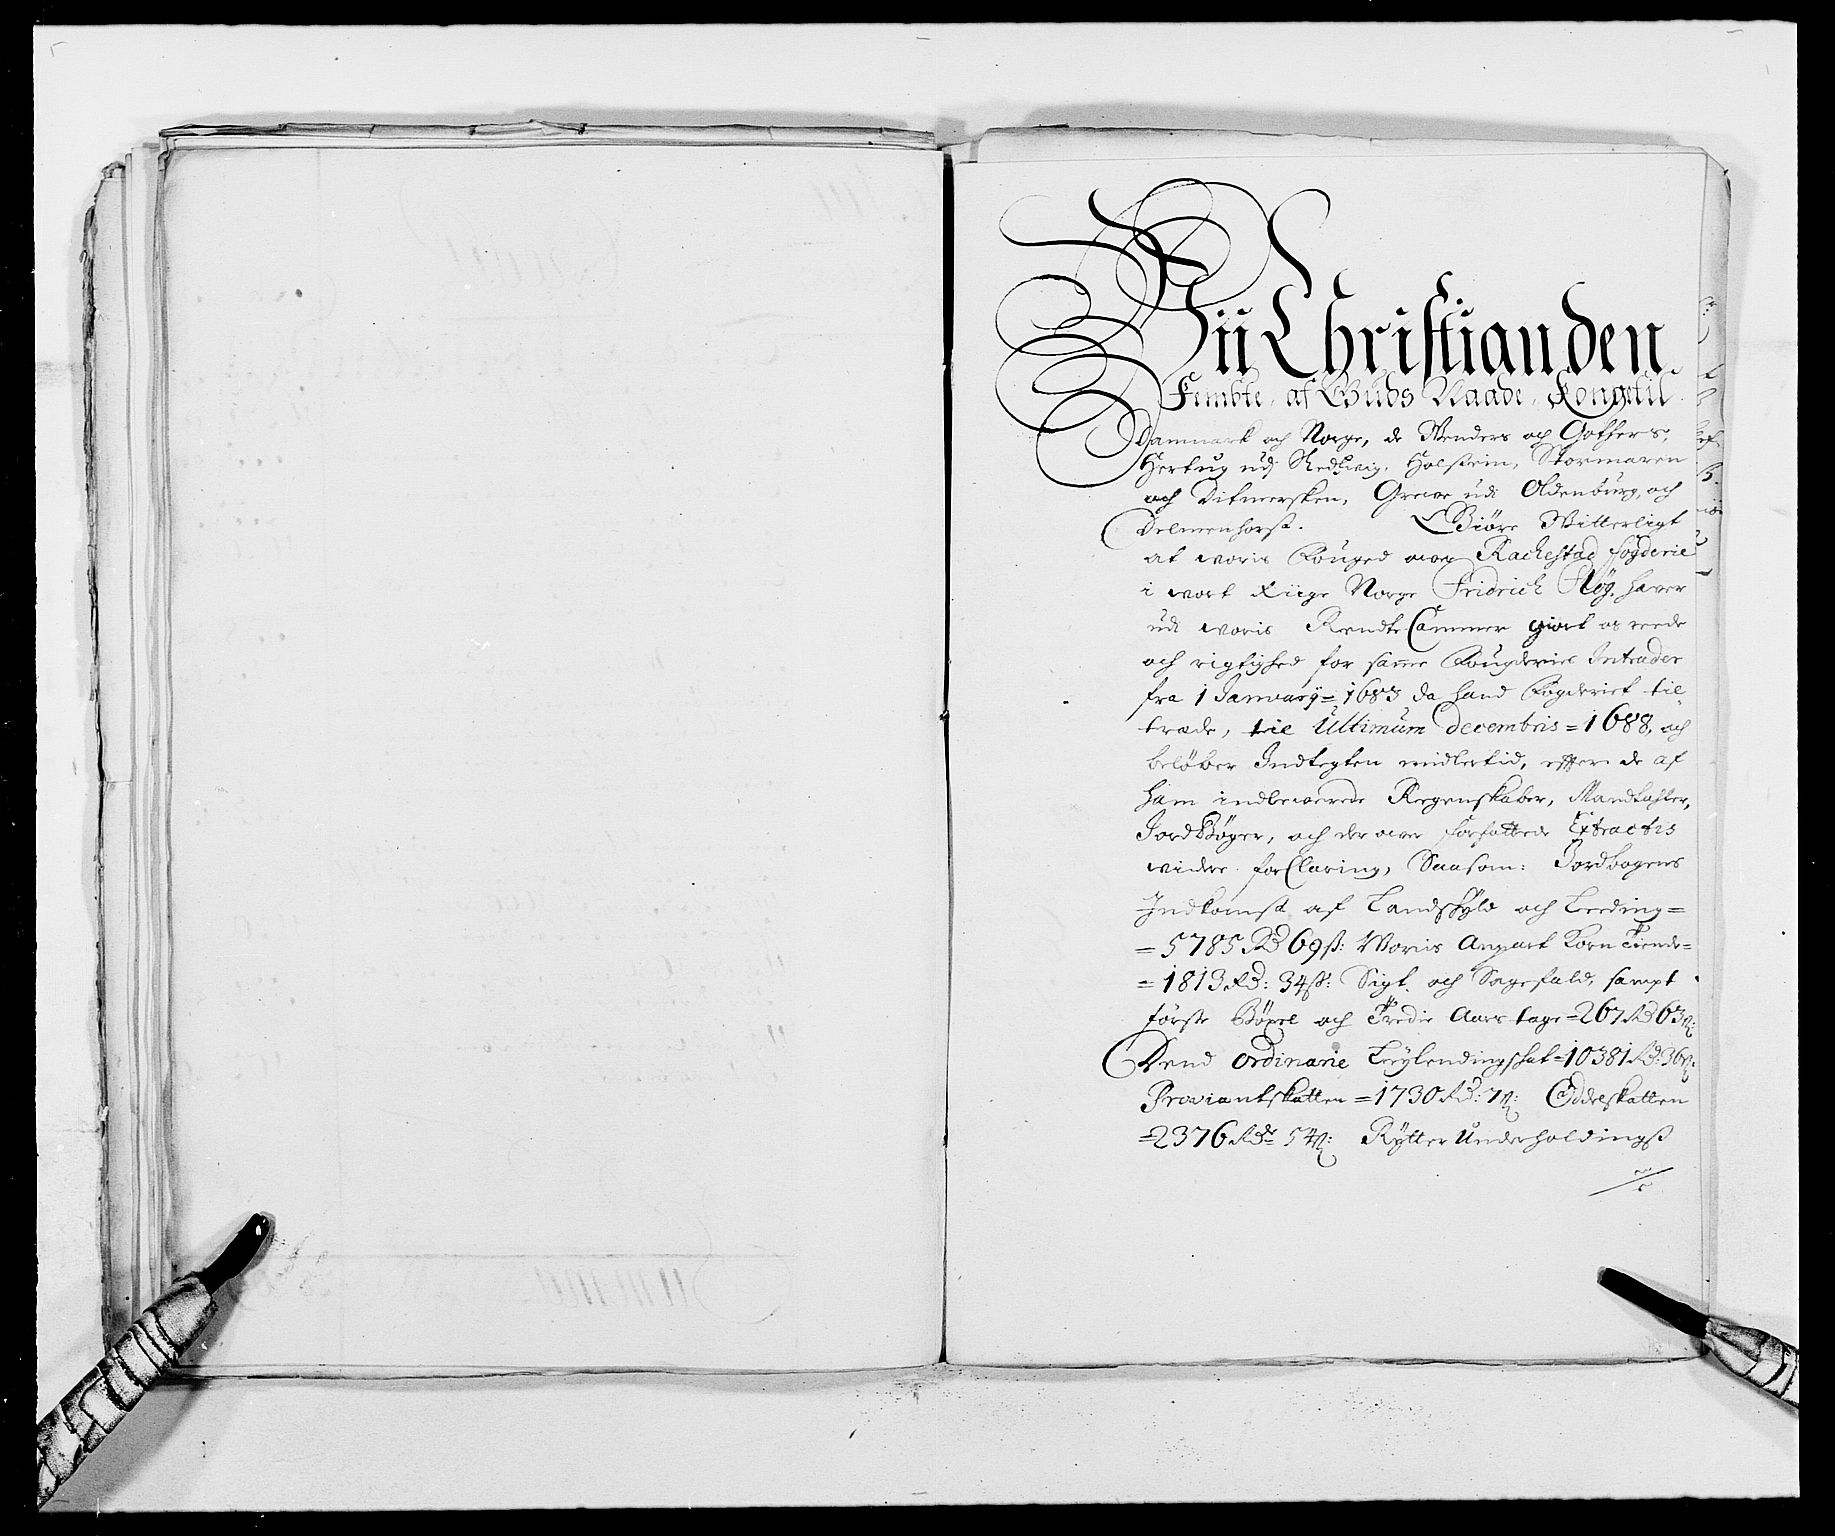 Wii Christian den
Fembte, af Guds Naade, Konge til
Danmark och Norge, de Wenders och Gothers,
Hertug udj Sledswig, Holstein, Stormaren
och Ditmersken, Greve udi Oldenburg, och
Delmenhorst. Giøre Witterligt
at woris Fouged over Rachestad fogderie
i wort Riige Norge Fridrich Høg, haver
udi woris Rendte Cammer giort os reede
och rigtighed for samme Fougderies Intrader
fra 1 January = 1683 da hand Fogderiet til
træde, til Ultimum decembris = 1688, och
beløber Indtegten midlertid, efter de af
ham indleverede Regenskaber, Mandtahler,
JordBøger, och der over forfattede Extractis
widere forClaring, Saasom: Jordbogens
Indkomst af Landskyld och Leeding =
= 5785 Rd 69 ß: Woris Anpart Korn Tiende =
= 1813 Rd: 34 ß: Sigt. och Sagefald, sampt
første Bøxel och Tredie Aars tage = 267 Rd 63 ß:
Dend ordinarie Leylendingschat = 10381 Rd: 36 ß:
Proviantskatten = 1730 Rd: 7 ß: Oddelskatten
= 2376 Rdr 54 ß: Rytter Underholdings